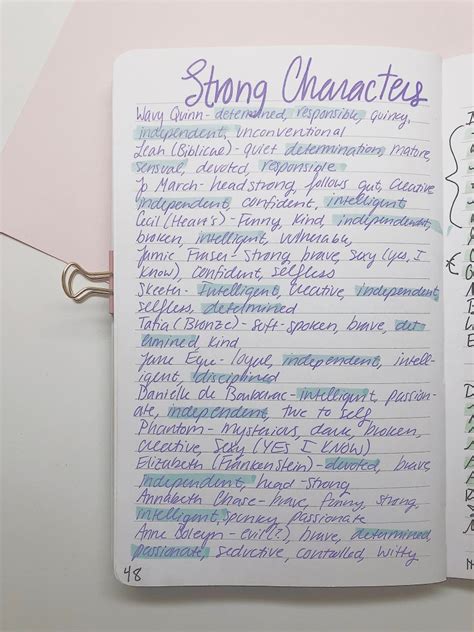 Strong Characters
Wavy Quinn- determined, responsible, quirky,
independent, unconventional
Leah (Biblical)- quiet determination, mature,
sensual, devoted, responsible
Jo March- headstrong, follows gut, creative
independent, confident, intelligent
Cecil (Hearts)- Funny, kind, independent,
broken, intelligent, vulnerable,
Jamie Fraser- Strong, brave, sexy (yes, I
know), confident, selfless
Skeeth- Intelligent, creative, independent,
selfless, determined
Tatia (Bronze)- soft-spoken, brave, det-
ermined, kind
Jane Eyre- loyal, independent, intell-
igent, disciplined
Danielle de Barbarac- intelligent, passion-
ate, independent, true to self
Phantom- mysterious, dark, broken,
creative, sexy (YES I KNOW)
Elizabeth (Frankenstein)- devoted, brave,
independent, head-strong
Annabeth Chase- brave, funny, strong,
intelligent, spunky, passionate
Anne Boleyn- evil(?), brave, determined,
passionate, seductive, controlled, witty
48